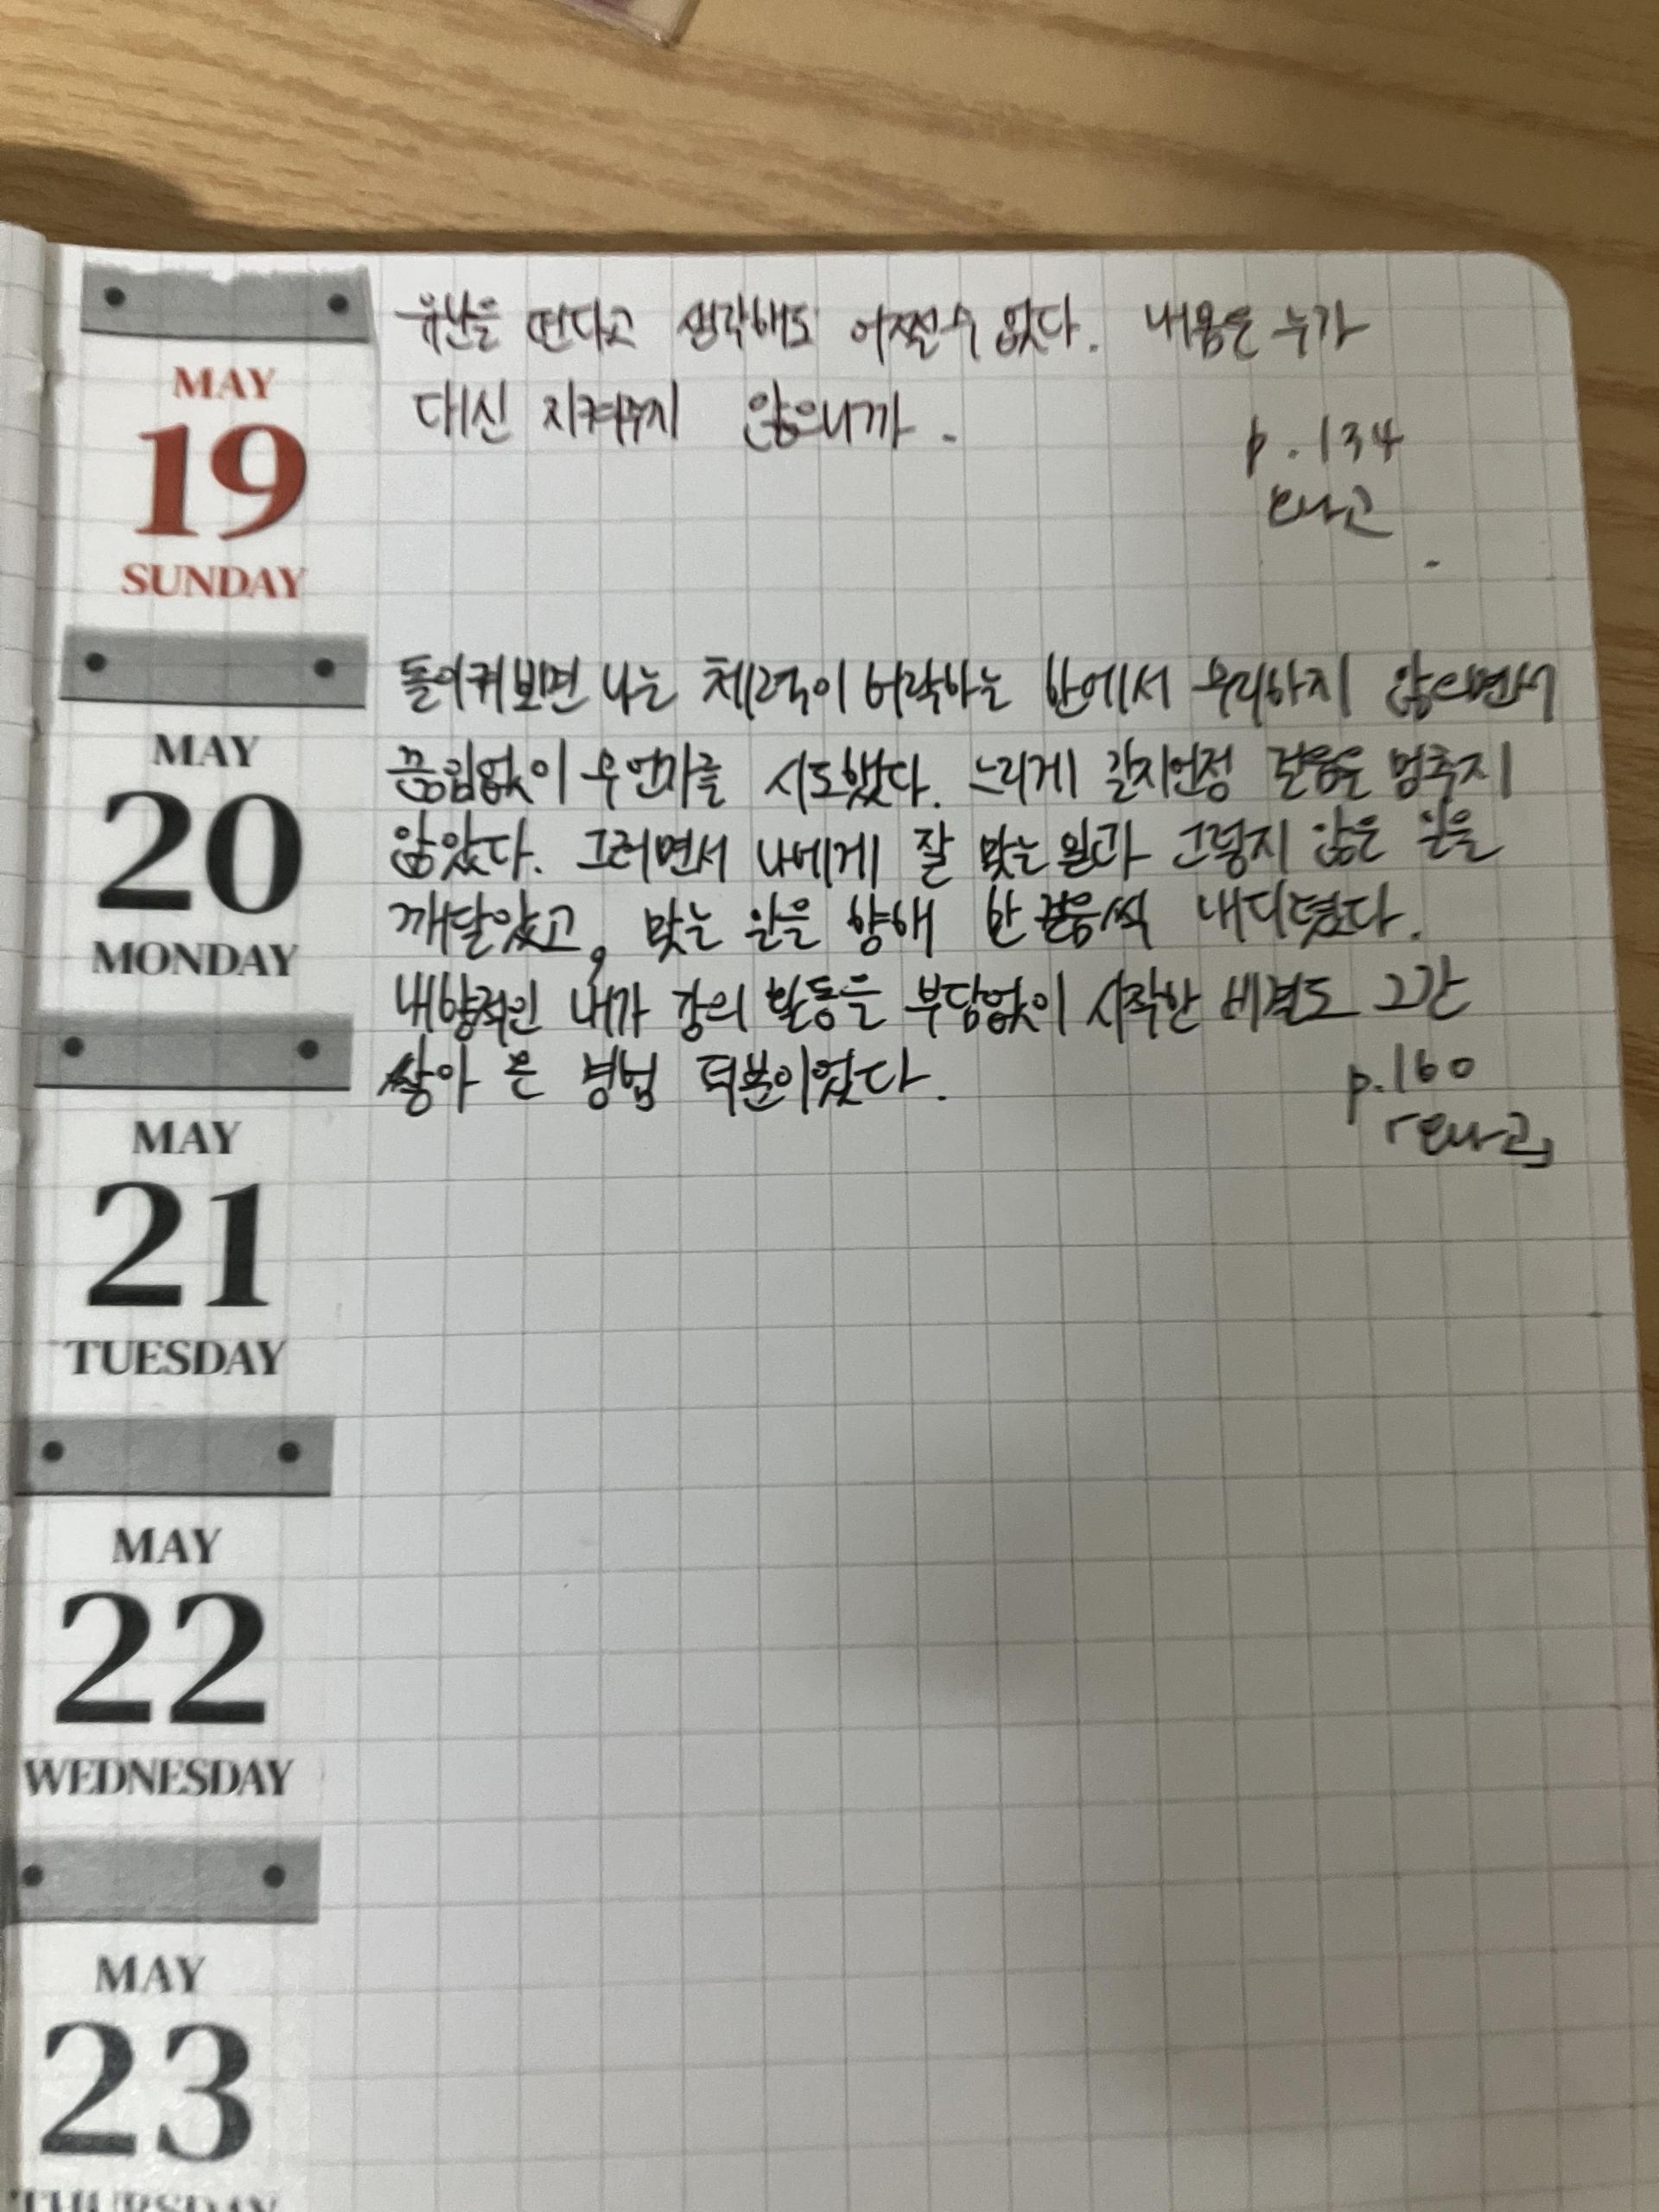 MAY
19
SUNDAY
유난을 떤다고 생각해도 어쩔 수 없다. 내 몸은 누가
대신 지켜주지 않으니까.
p.134
MAY
20
MONDAY
돌이켜보면 나는 체력이 허락하는 한에서 무리하지 않으면서
끊임없이 무언가를 시도했다. 느리게 갈지언정 걸음을 멈추지
않았다. 그러면서 나에게 잘 맞는 일과 그렇지 않은 일을
깨달았고, 맞는 일을 향해 한 걸음씩 내디뎠다.
내향적인 내가 강의 활동을 부담없이 시작한 비결도 그간
쌓아 온 경험 덕분이었다.
p.160
MAY
21
TUESDAY
MAY
22
WEDNESDAY
MAY
23
THURSDAY